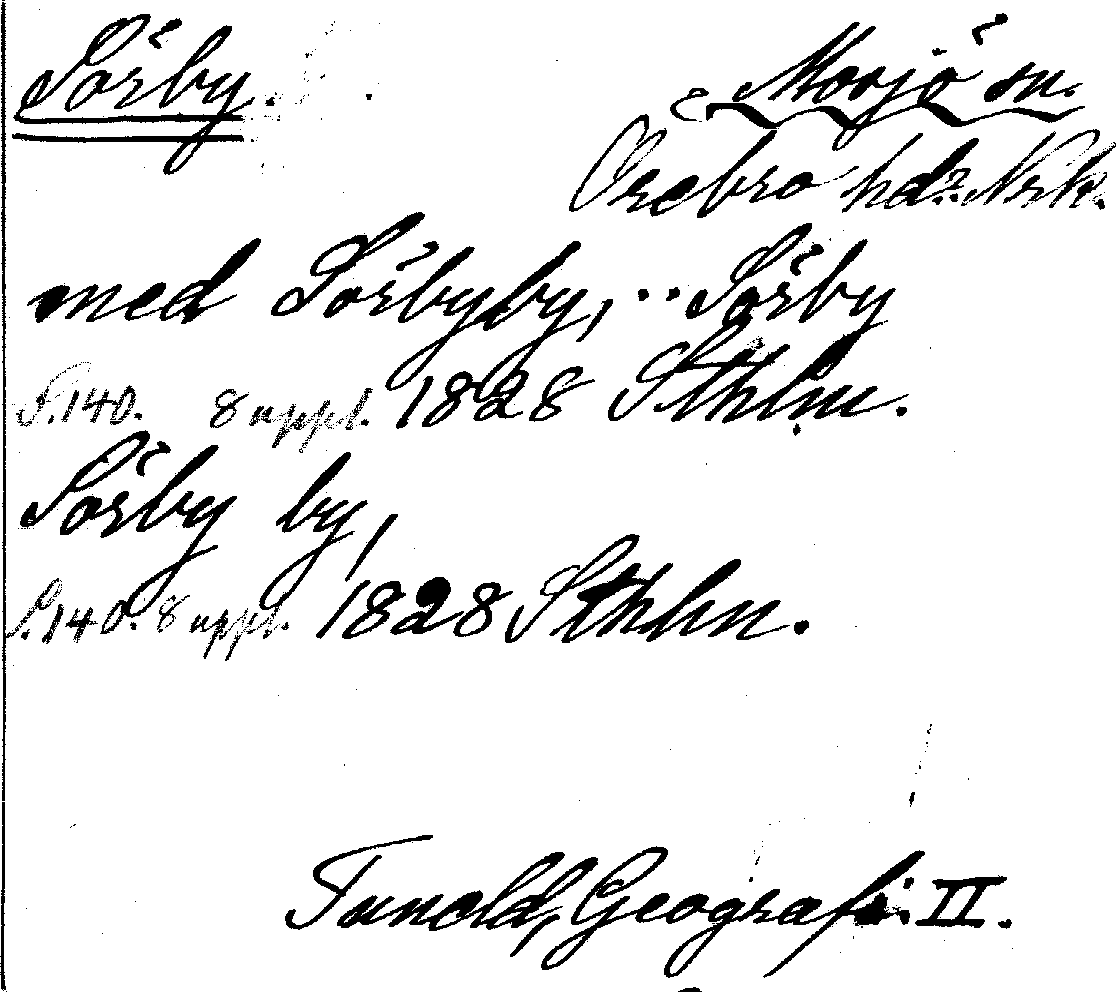 Sörby.
Mosjö sn.
Örebro hd. Nrk.
med Sörbyby, ·· Sörby
S.140. 8 uppl. 1828 Sthlm.
Sörby by,
S.140. 8 uppl. 1828 Sthlm.
Tuneld, Geografi. II.